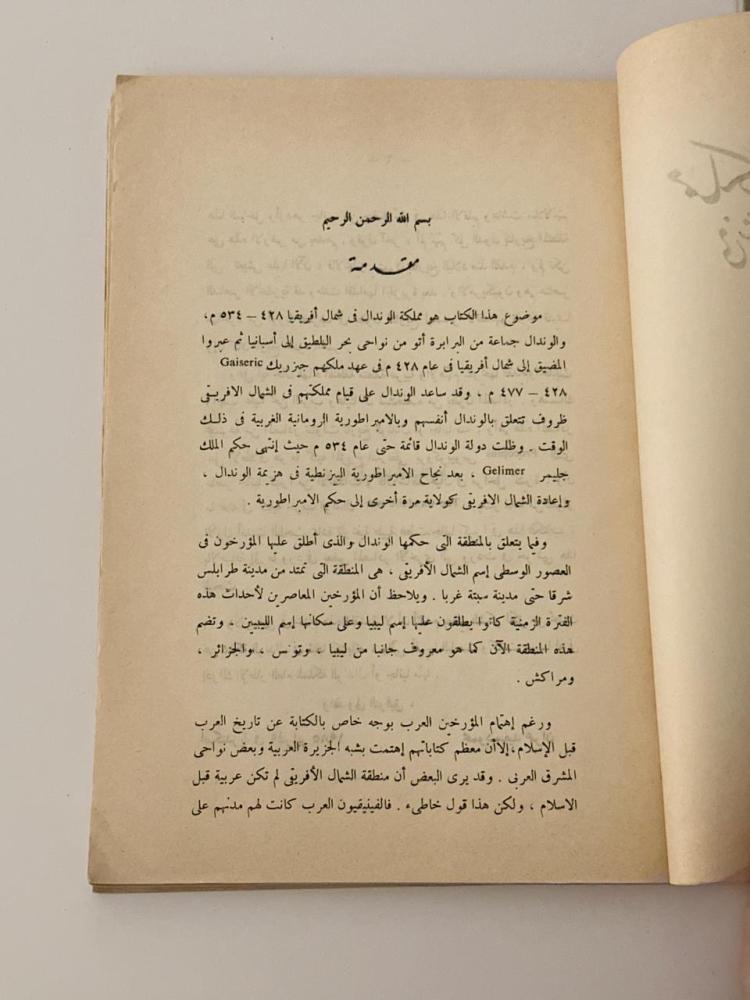 بسم الله الرحمن الرحيم
مقدمة
موضوع هذا الكتاب هو مملكة الوندال فى شمال أفريقيا ٤٢٨ – ٥٣٤ م ،
والوندال جماعة من البرابرة أتو من نواحى بحر البلطيق إلى أسبانيا ثم عبروا
المضيق إلى شمال أفريقيا فى عام ٤٢٨ م فى عهد ملكهم جيزريك Gaiseric
٤٢٨ – ٤٧٧ م ، وقد ساعد الوندال على قيام مملكتهم فى الشمال الافريقى
ظروف تتعلق بالوندال أنفسهم وبالامبراطورية الرومانية الغربية فى ذلك
الوقت . وظلت دولة الوندال قائمة حتى عام ٥٣٤ م حيث إنتهى حكم الملك
جليمر Gelimer ، بعد نجاح الامبراطورية البيزنطية فى هزيمة الوندال ،
وإعادة الشمال الافريقى كولاية مرة أخرى إلى حكم الامبراطورية .
وفيما يتعلق بالمنطقة التى حكمها الوندال والذى أطلق عليها المؤرخون فى
العصور الوسطى إسم الشمال الأفريقى ، هى المنطقة التى تمتد من مدينة طرابلس
شرقا حتى مدينة سبتة غربا . ويلاحظ أن المؤرخين المعاصرين لأحداث هذه
الفترة الزمنية كانوا يطلقون عليها إسم ليبيا وعلى سكانها إسم الليبيين ، وتضم
هذه المنطقة الآن كما هو معروف جانبا من ليبيا ، وتونس ، والجزائر ،
ومراكش .
ورغم إهتمام المؤرخين العرب بوجه خاص بالكتابة عن تاريخ العرب
قبل الإسلام ، إلا أن معظم كتاباتهم إهتمت بشبه الجزيرة العربية وبعض نواحى
المشرق العربى . وقد يرى البعض أن منطقة الشمال الأفريقى لم تكن عربية قبل
الاسلام ، ولكن هذا قول خاطىء . فالفينيقيون العرب كانت لهم مدنهم على